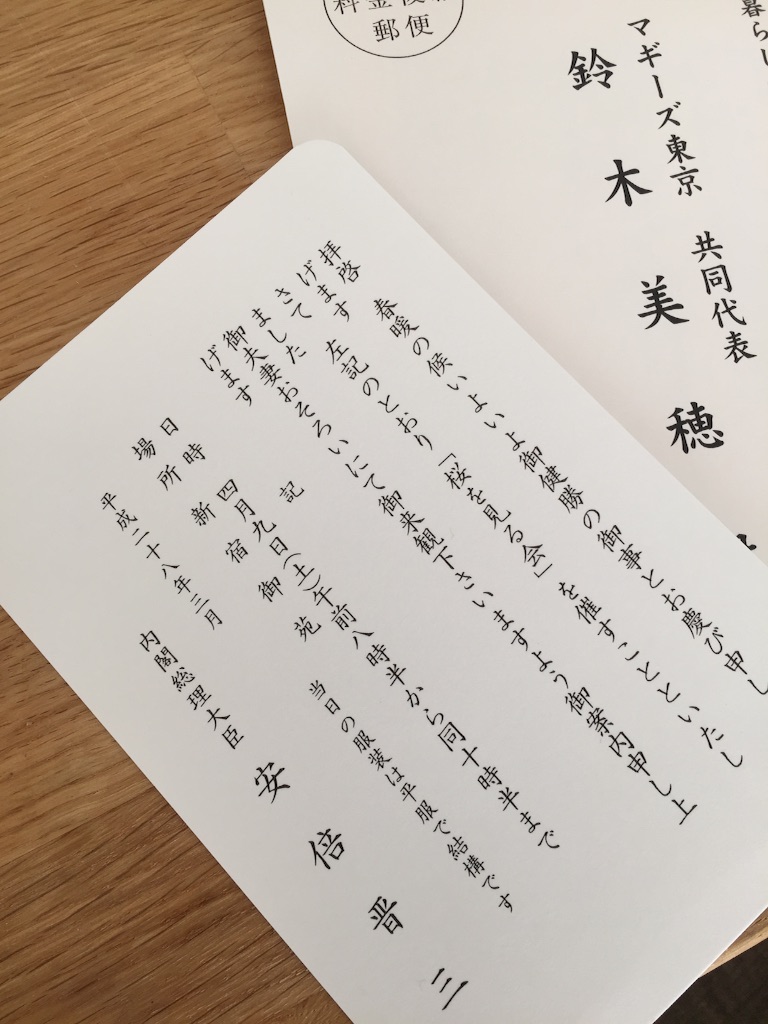 拝啓　春暖の候いよいよ御健勝の御事とお慶び申し
げます
さて　左記のとおり「桜を見る会」を催すことといたし
ました
御夫妻おそろいにて御来観下さいますよう御案内申し上
げます
記
日時　四月九日(土)午前八時半から同十時半まで
場所　新宿御苑　当日の服装は平服で結構です
平成二十八年三月
内閣総理大臣　安倍晋三
郵便
暮らし
マギーズ東京　共同代表
鈴木美穂